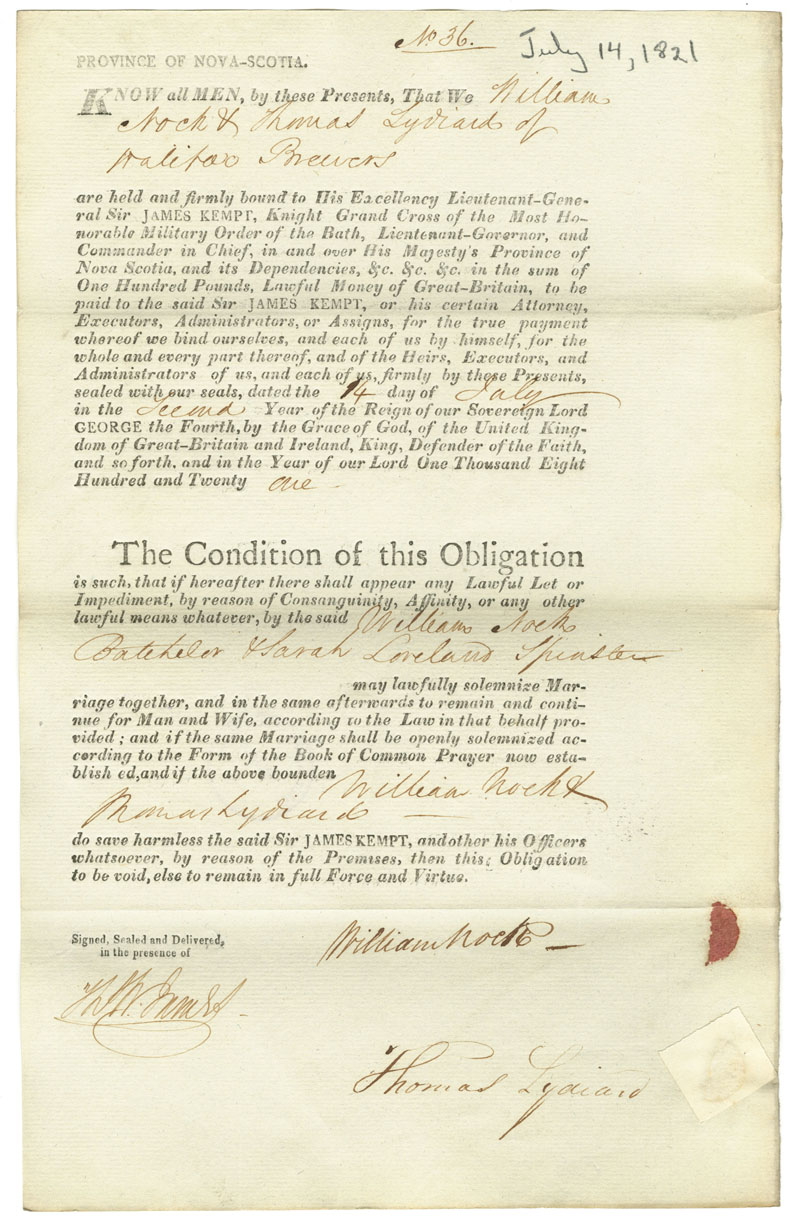 No 36.
July 14, 1821
PROVINCE OF NOVA-SCOTIA.
KNOW all MEN, by these Presents, That We William
Nock & Thomas Lydiard of
Halifax Brewers
are held and firmly bound to His Excellency Lieutenant-Gene-
ral Sir JAMES KEMPT, Knight Grand Cross of the Most Ho-
norable Military Order of the Bath, Lieutenant-Governor, and
Commander in Chief, in and over His Majesty's Province of
Nova Scotia, and its Dependencies, &c. &c. &c. in the sum of
One Hundred Pounds, Lawful Money of Great-Britain, to be
paid to the said Sir JAMES KEMPT, or his certain Attorney,
Executors, Administrators, or Assigns, for the true payment
whereof we bind ourselves, and each of us by himself, for the
whole and every part thereof, and of the Heirs, Executors, and
Administrators of us, and each of us, firmly by these Presents,
sealed with our seals, dated the 14 day of July
in the Second Year of the Reign of our Sovereign Lord
GEORGE the Fourth, by the Grace of God, of the United King-
dom of Great-Britain and Ireland, King, Defender of the Faith,
and so forth, and in the Year of our Lord One Thousand Eight
Hundred and Twenty one -
The Condition of this Obligation
is such, that if hereafter there shall appear any Lawful Let or
Impediment, by reason of Consanguinity, Affinity, or any other
lawful means whatever, by the said William Nock
Batchelor & Sarah Loveland Spinster
may lawfully solemnize Mar-
riage together, and in the same afterwards to remain and conti-
nue for Man and Wife, according to the Law in that behalf pro-
vided; and if the same Marriage shall be openly solemnized ac-
cording to the Form of the Book of Common Prayer now esta-
blish ed, and if the above bounden William Nock &
Thomas Lydiard —
do save harmless the said Sir JAMES KEMPT, and other his Officers
whatsoever, by reason of the Premises, then this Obligation
to be void, else to remain in full Force and Virtue.
Signed, Sealed and Delivered,
in the presence of
William Nock —
Thomas Lydiard